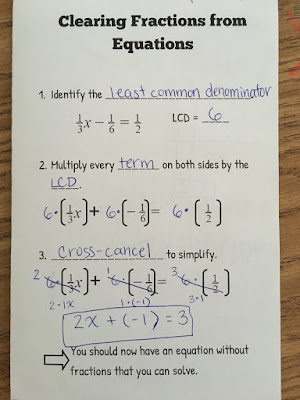 Clearing Fractions from
Equations
1. Identify the least common denominator
1/3x − 1/6 = 1/2 LCD = 6
2. Multiply every term on both sides by the
LCD.
6·(1/3x) + 6·(−1/6) = 6·(1/2)
3. cross-cancel to simplify.
2 6·(1/3x) + 1 6·(−1/6) = 3 6·(1/2)
2·1x 1·(-1) 3·1
2x + (-1) = 3
You should now have an equation without
fractions that you can solve.